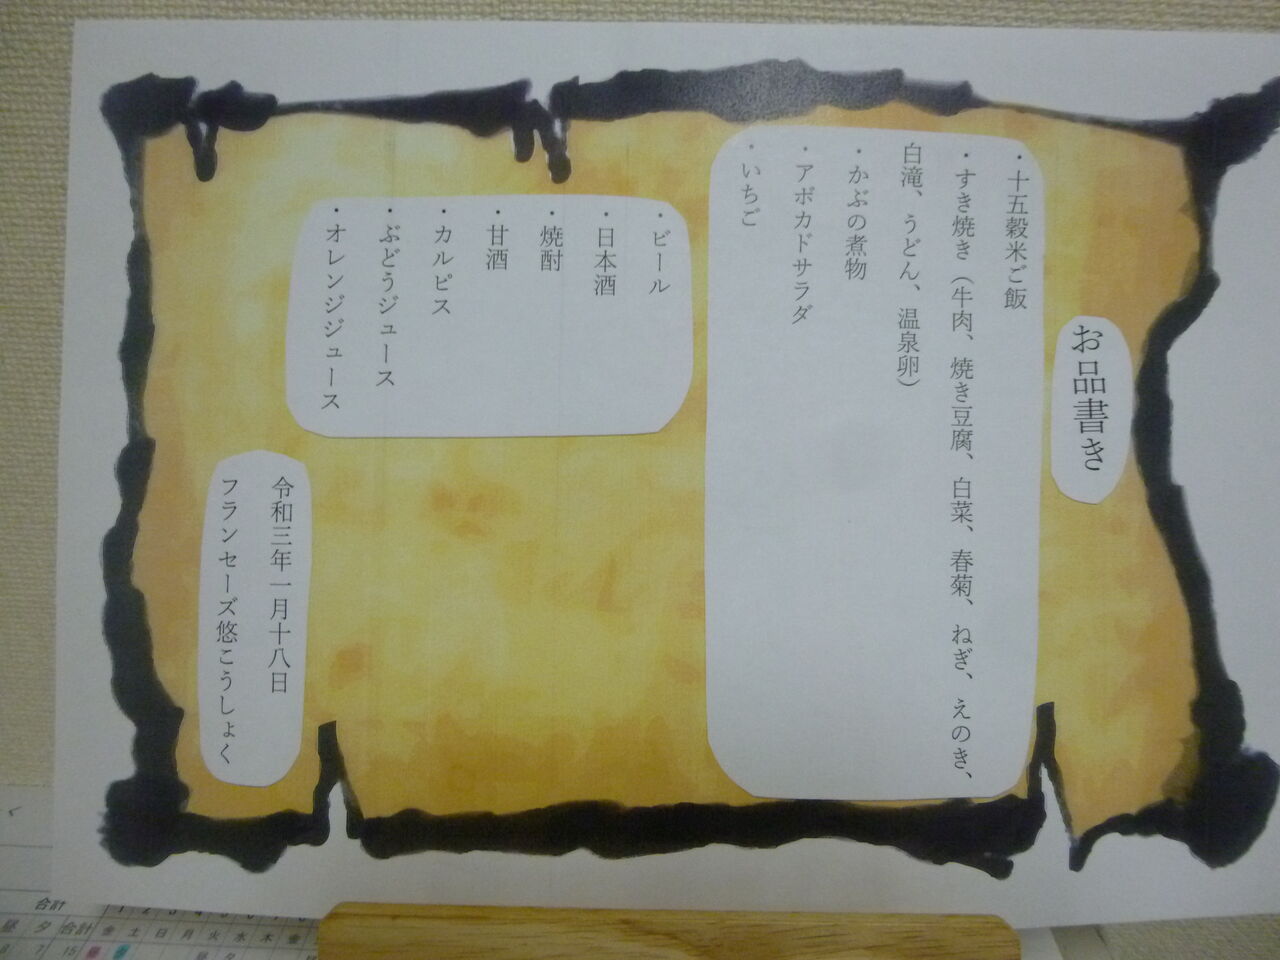 お品書き
・十五穀米ご飯
・すき焼き（牛肉、焼き豆腐、白菜、春菊、ねぎ、えのき、
白滝、うどん、温泉卵）
・かぶの煮物
・アボカドサラダ
・いちご
・ビール
・日本酒
・焼酎
・甘酒
・カルピス
・ぶどうジュース
・オレンジジュース
令和三年一月十八日
フランセーズ悠こうしょく
合計
昼 夕 合計 金 土 日 月 火 水 木 金
8 7 15